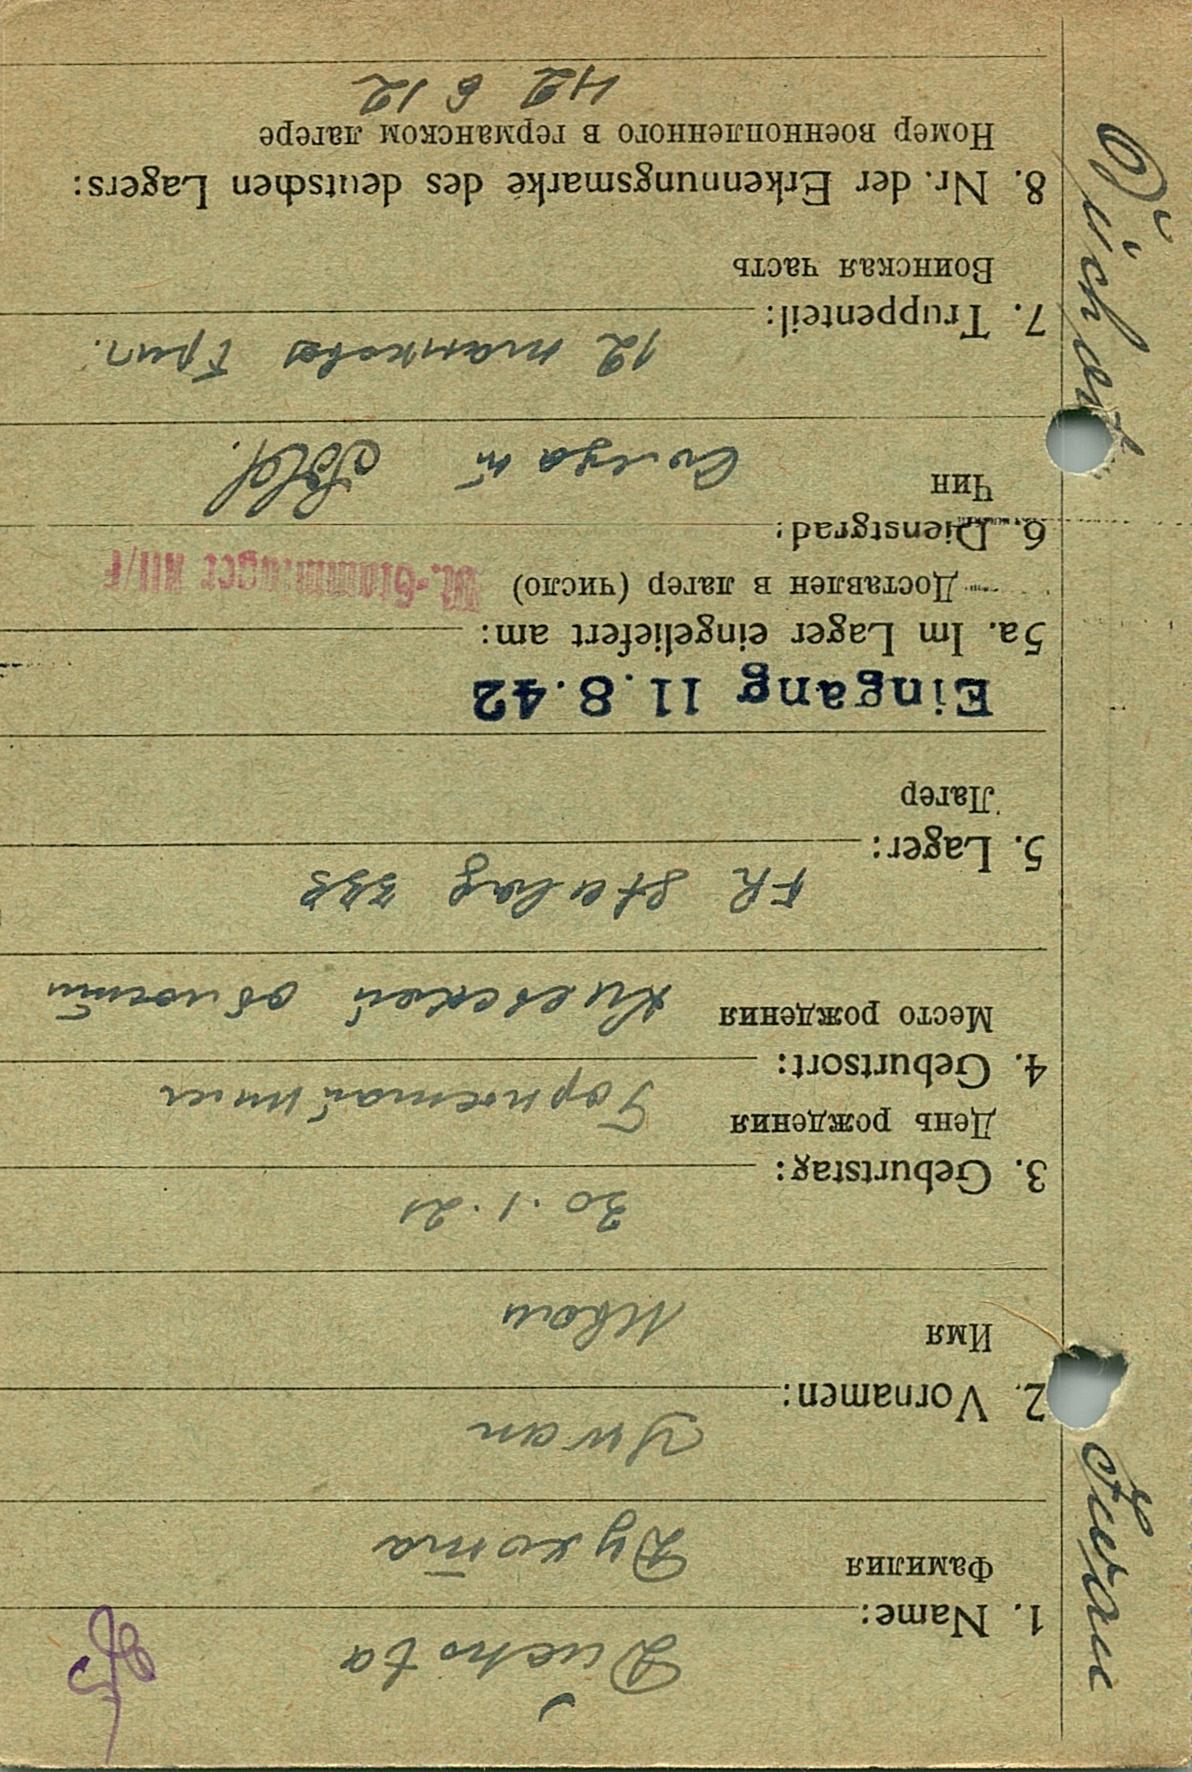 1. Name:
Duchota
Фамилия
Духота
2. Vornamen:
Ywan
Имя
Иван
3. Geburtstag:
30.1.21
День рождения
4. Geburtsort:
Горностайпили
Место рождения
Киевской области
5. Lager:
FR Stalag
Лагер
Eingang 11.8.42
5a. Im Lager eingeliefert am:
Доставлен в лагер (число)
M.-Stammlager XII/F
6. Dienstgrad:
Чин
Солдат Sold.
7. Truppenteil:
12 танковая бриг.
Воинская часть
8. Nr. der Erkennungsmarke des deutschen Lagers:
Номер военнопленного в германском лагере
42 612
Iwan